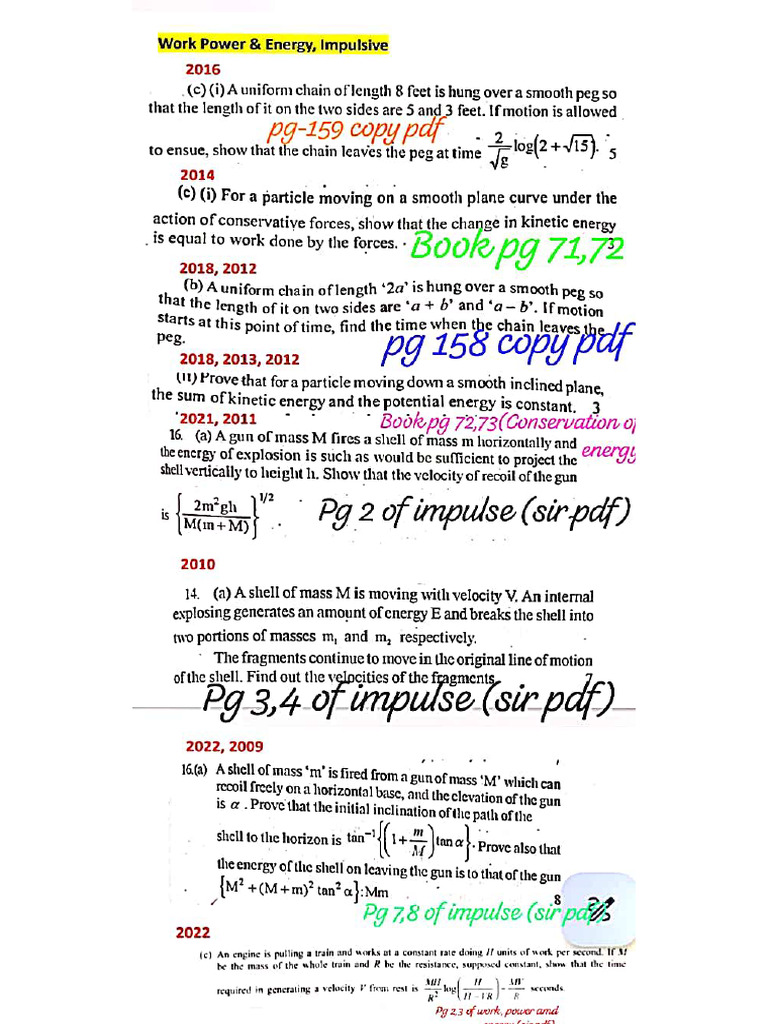 Work Power & Energy, Impulsive
2016
(c) (i) A uniform chain of length 8 feet is hung over a smooth peg so
that the length of it on the two sides are 5 and 3 feet. If motion is allowed
pg-159 copy pdf
to ensue, show that the chain leaves the peg at time 2/√g log(2 + √15). 5
2014
(c) (i) For a particle moving on a smooth plane curve under the
action of conservative forces, show that the change in kinetic energy
is equal to work done by the forces. 3
Book pg 71,72
2018, 2012
(b) A uniform chain of length '2a' is hung over a smooth peg so
that the length of it on two sides are 'a + b' and 'a – b'. If motion
starts at this point of time, find the time when the chain leaves the
peg.
pg 158 copy pdf
2018, 2013, 2012
(ii) Prove that for a particle moving down a smooth inclined plane,
the sum of kinetic energy and the potential energy is constant. 3
2021, 2011
Book pg 72,73(Conservation of
energy
16. (a) A gun of mass M fires a shell of mass m horizontally and
the energy of explosion is such as would be sufficient to project the
shell vertically to height h. Show that the velocity of recoil of the gun
is {2m²gh / M(m + M)}^1/2.
Pg 2 of impulse (sir pdf)
2010
14. (a) A shell of mass M is moving with velocity V. An internal
explosing generates an amount of energy E and breaks the shell into
two portions of masses m₁ and m₂ respectively.
The fragments continue to move in the original line of motion
of the shell. Find out the velocities of the fragments.
Pg 3,4 of impulse (sir pdf)
2022, 2009
16.(a) A shell of mass 'm' is fired from a gun of mass 'M' which can
recoil freely on a horizontal base, and the elevation of the gun
is α. Prove that the initial inclination of the path of the
shell to the horizon is tan⁻¹{(1 + m/M) tan α}. Prove also that
the energy of the shell on leaving the gun is to that of the gun
{M² + (M + m)² tan² α}:Mm
8
Pg 7,8 of impulse (sir pdf)
2022
(c) An engine is pulling a train and works at a constant rate doing H units of work per second. If M
be the mass of the whole train and R be the resistance, supposed constant, show that the time
required in generating a velocity V from rest is MH/R² log(H / H - VR) - MV/R seconds.
Pg 2,3 of work, power amd